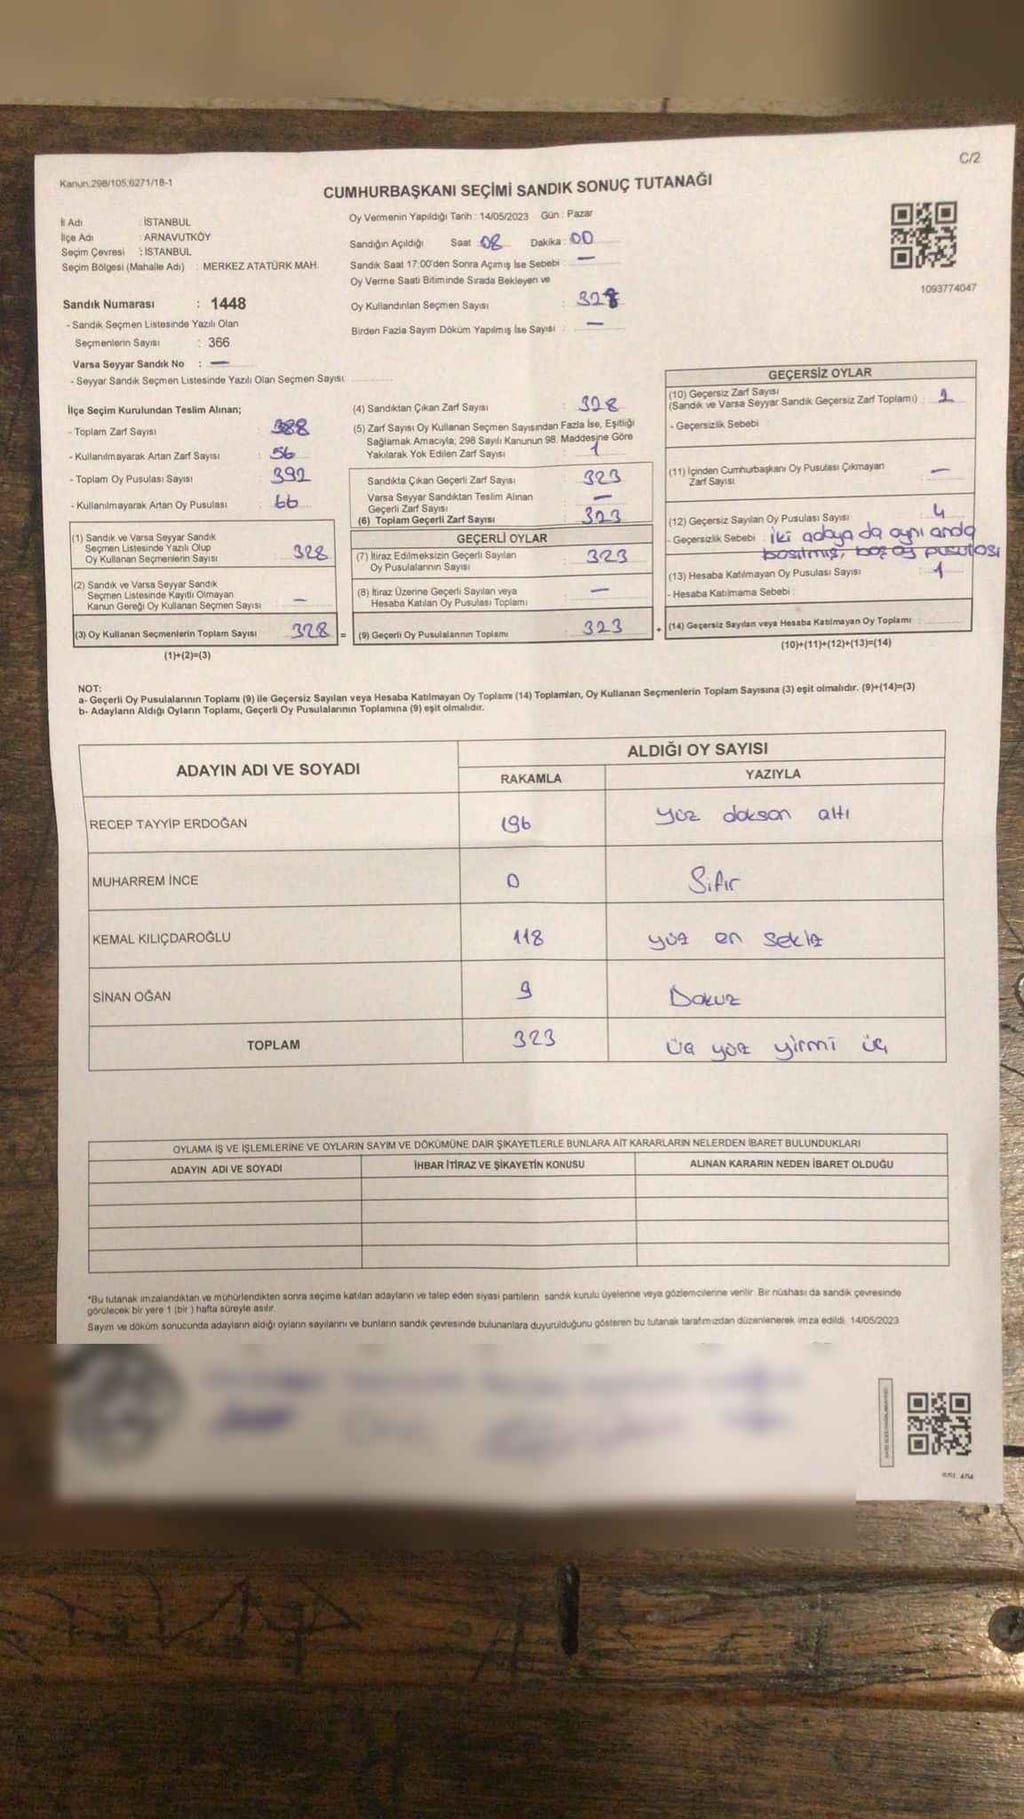 C/2
Kanun.298/105.6271/18-1
CUMHURBAŞKANI SEÇİMİ SANDIK SONUÇ TUTANAĞI
İl Adı : İSTANBUL
İlçe Adı : ARNAVUTKÖY
Seçim Çevresi : İSTANBUL
Seçim Bölgesi (Mahalle Adı) : MERKEZ ATATÜRK MAH.
Sandık Numarası : 1448
- Sandık Seçmen Listesinde Yazılı Olan
Seçmenlerin Sayısı : 366
Varsa Seyyar Sandık No : —
- Seyyar Sandık Seçmen Listesinde Yazılı Olan Seçmen Sayısı:
Oy Vermenin Yapıldığı Tarih : 14/05/2023 Gün : Pazar
Sandığın Açıldığı Saat 08 Dakika : 00
Sandık Saat 17:00'den Sonra Açımış İse Sebebi : —
Oy Verme Saati Bitiminde Sırada Bekleyen ve
Oy Kullandırılan Seçmen Sayısı : 328
Birden Fazla Sayım Döküm Yapılmış İse Sayısı : —
1093774047
İlçe Seçim Kurulundan Teslim Alınan;
- Toplam Zarf Sayısı : 388
- Kullanılmayarak Artan Zarf Sayısı : 56
- Toplam Oy Pusulası Sayısı : 392
- Kullanılmayarak Artan Oy Pusulası : 66
(1) Sandık ve Varsa Seyyar Sandık
Seçmen Listesinde Yazılı Olup
Oy Kullanan Seçmenlerin Sayısı 328
(2) Sandık ve Varsa Seyyar Sandık
Seçmen Listesinde Kayıtlı Olmayan
Kanun Gereği Oy Kullanan Seçmen Sayısı —
(3) Oy Kullanan Seçmenlerin Toplam Sayısı 328 =
(1)+(2)=(3)
(4) Sandıktan Çıkan Zarf Sayısı : 328
(5) Zarf Sayısı Oy Kullanan Seçmen Sayısından Fazla İse, Eşitliği
Sağlamak Amacıyla, 298 Sayılı Kanunun 98. Maddesine Göre
Yakılarak Yok Edilen Zarf Sayısı : 1
Sandıkta Çıkan Geçerli Zarf Sayısı : 323
Varsa Seyyar Sandıktan Teslim Alınan
Geçerli Zarf Sayısı : —
(6) Toplam Geçerli Zarf Sayısı : 323
GEÇERLİ OYLAR
(7) İtiraz Edilmeksizin Geçerli Sayılan
Oy Pusulalarının Sayısı : 323
(8) İtiraz Üzerine Geçerli Sayılan veya
Hesaba Katılan Oy Pusulası Toplamı : —
(9) Geçerli Oy Pusulalarının Toplamı : 323 +
GEÇERSİZ OYLAR
(10) Geçersiz Zarf Sayısı
(Sandık ve Varsa Seyyar Sandık Geçersiz Zarf Toplamı) :
- Geçersizlik Sebebi
(11) İçinden Cumhurbaşkanı Oy Pusulası Çıkmayan
Zarf Sayısı : —
(12) Geçersiz Sayılan Oy Pusulası Sayısı : 4
- Geçersizlik Sebebi : iki adaya da aynı anda
basılmış, boş oy pusulası
(13) Hesaba Katılmayan Oy Pusulası Sayısı : 1
- Hesaba Katılmama Sebebi :
(14) Geçersiz Sayılan veya Hesaba Katılmayan Oy Toplamı :
(10)+(11)+(12)+(13)=(14)
NOT:
a- Geçerli Oy Pusulalarının Toplamı (9) ile Geçersiz Sayılan veya Hesaba Katılmayan Oy Toplamı (14) Toplamları, Oy Kullanan Seçmenlerin Toplam Sayısına (3) eşit olmalıdır. (9)+(14)=(3)
b- Adayların Aldığı Oyların Toplamı, Geçerli Oy Pusulalarının Toplamına (9) eşit olmalıdır.
ADAYIN ADI VE SOYADI ALDIĞI OY SAYISI
RAKAMLA YAZIYLA
RECEP TAYYİP ERDOĞAN 196 yüz doksan altı
MUHARREM İNCE 0 Sıfır
KEMAL KILIÇDAROĞLU 118 yüz on sekiz
SİNAN OĞAN 9 Dokuz
TOPLAM 323 üç yüz yirmi üç
OYLAMA İŞ VE İŞLEMLERİNE VE OYLARIN SAYIM VE DÖKÜMÜNE DAİR ŞİKAYETLERLE BUNLARA AİT KARARLARIN NELERDEN İBARET BULUNDUKLARI
ADAYIN ADI VE SOYADI İHBAR İTİRAZ VE ŞİKAYETİN KONUSU ALINAN KARARIN NEDEN İBARET OLDUĞU
*Bu tutanak imzalandıktan ve mühürlendikten sonra seçime katılan adayların ve talep eden siyasi partilerin sandık kurulu üyelerine veya gözlemcilerine verilir. Bir nüshası da sandık çevresinde
görülecek bir yere 1 (bir) hafta süreyle asılır.
Sayım ve döküm sonucunda adayların aldığı oyların sayılarını ve bunların sandık çevresinde bulunanlara duyurulduğunu gösteren bu tutanak tarafımızdan düzenlenerek imza edildi. 14/05/2023